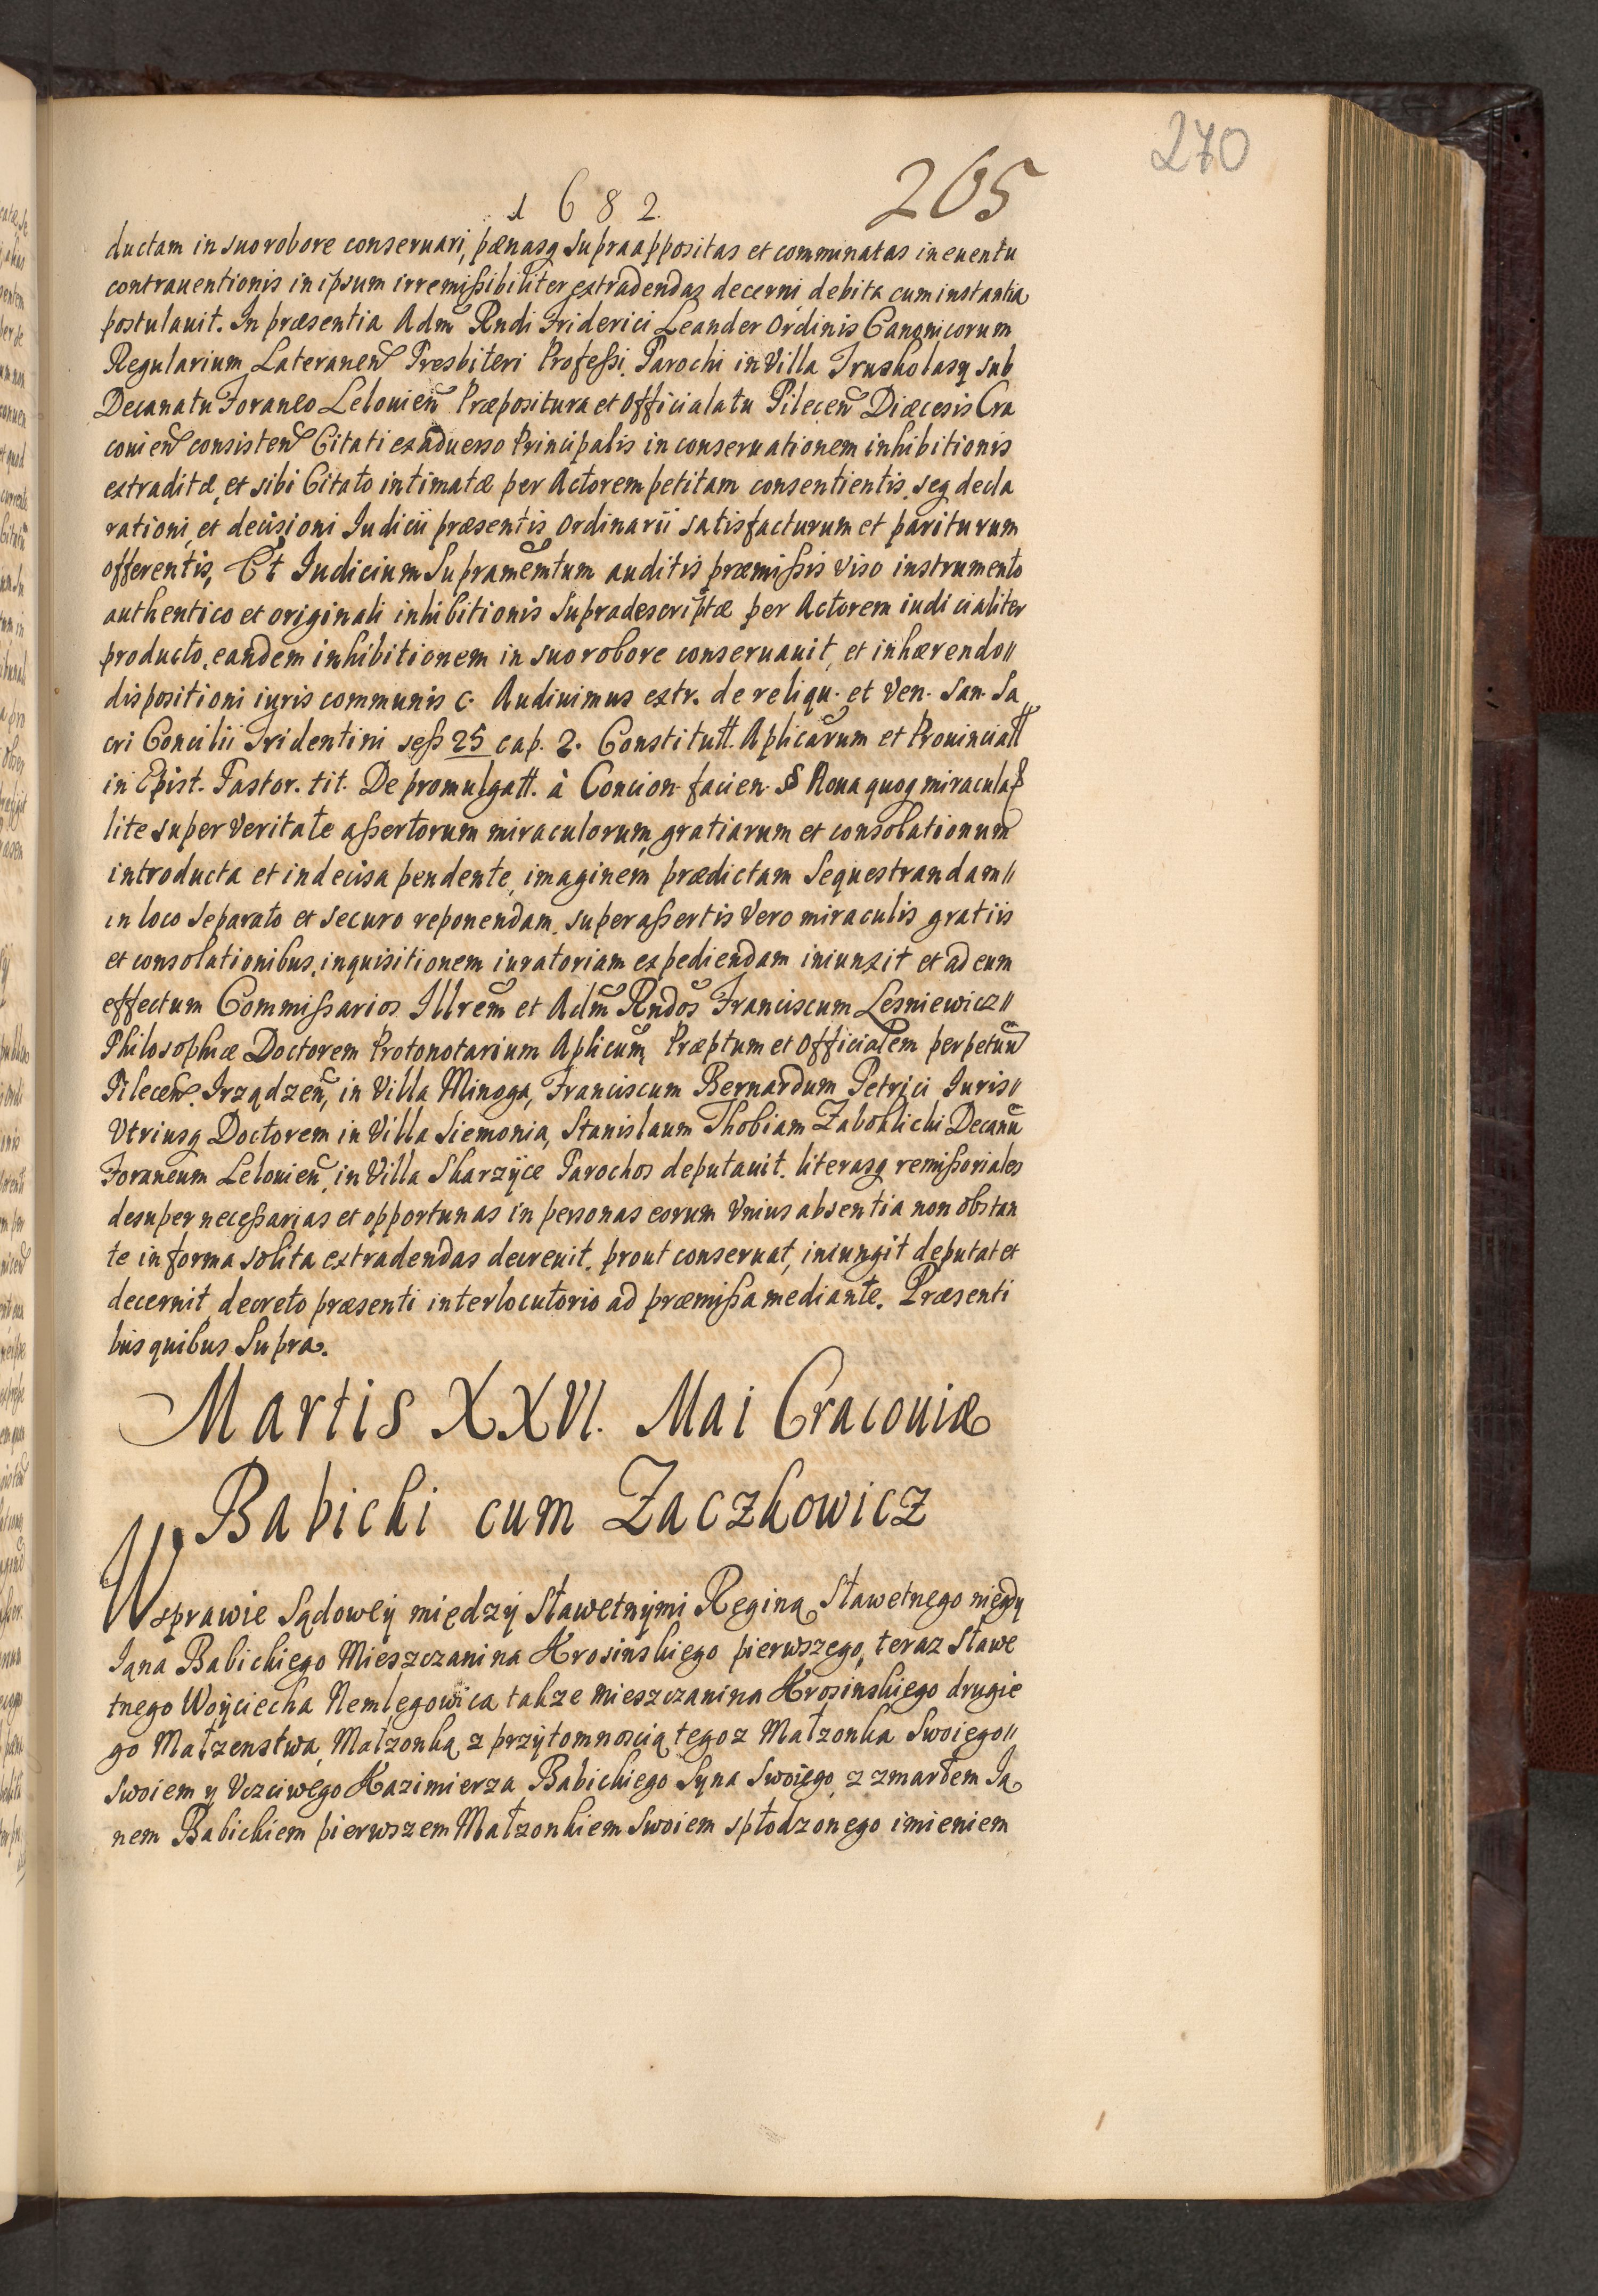 270
265
1682
ductam in suo robore conseruari, pænasq supraappositas et comminatas in euentu
contrauentionis in ipsum irremißibiliter extradendas decerni debita cum instantia
postulauit. In præsentia Adm Rndi Friderici Leander Ordinis Canonicorum
Regularium Lateranen Presbiteri Profeßi. Parochi in Villa Truskolasy sub
Decanatu Foraneo Lelouien Præpositura et Officialatu Pilecen Diæcesis Cra
couien consisten Citati ex aduerso Principalis in conseruationem inhibitionis
extraditæ, et sibi Citato intimatæ per Actorem petitam consentientis, seq decla
rationi, et decisioni Iudicii præsentis Ordinarii satisfacturum et pariturum
offerentis, Et Iudicium Supramemtum auditis præmißis viso instrumento
authentico et originali inhibitionis Supradescriptæ per Actorem iudicialiter
producto, eandem inhibitionem in suo robore conseruauit, et inhærendo //
dispositioni iuris communis c. Audiuimus extr. de reliqu. et Ven. San. Sa
cri Concilii Tridentini seß 25 cap. 2. Constitutt. Aplicarum et Prouinciatt
in Epist. Pastor. tit. De promulgatt. à Concion. facien. § Noua quoq miracula
lite super veritate aßertorum miraculorum, gratiarum et consolationum
introducta et indecisa pendente, imaginem prædictam Sequestrandam //
in loco separato et securo reponendam, super aßertis vero miraculis gratiis
et consolationibus, inquisitionem iuratoriam expediendam iniunxit et ad eum
effectum Commißarios Illrem et Adm Rndos Franciscum Lesniewicz //
Philosophiæ Doctorem Protonotarium Aplicum, Præptum et Officialem perpetuu
Pilecen. Irządzen, in Villa Minoga, Franciscum Bernardum Petrici Iuris //
Vtriusq Doctorem in Villa Siemonia, Stanislaum Thobiam Zaboklicki Decanu
Foraneum Lelouien, in Villa Skarzÿce Parochos deputauit. literasq remißoriales
desuper neceßarias et opportunas in personas eorum Vnius absentia non obstan
te in forma solita extradendas decreuit. prout conseruat, iniungit deputat et
decernit decreto præsenti interlocutorio ad præmißa mediante. Præsenti
bus quibus Supra.
Martis XXVI. Mai Cracouiæ
Babicki cum Zaczkowicz
W sprawie Sądowëÿ międzÿ Sławetnÿmi Reginą Sławetnego niegdy
Iana Babickiego Mieszczanina Krosinskiego pierwszego, teraz Sławe
tnego Woÿciecha Nemlęgowica takze mieszczanina Krosinskiego drugie
go Małzenstwa, Małzonką z przÿtomnoscią tegoz Małzonka Swoiego //
Swoiem y Vczciwego Kazimierza Babickiego Syna Swoiego z zmarłem Ia
nem Babickiem pierwszem Małzonkiem Swoiem spłodzonego imieniem